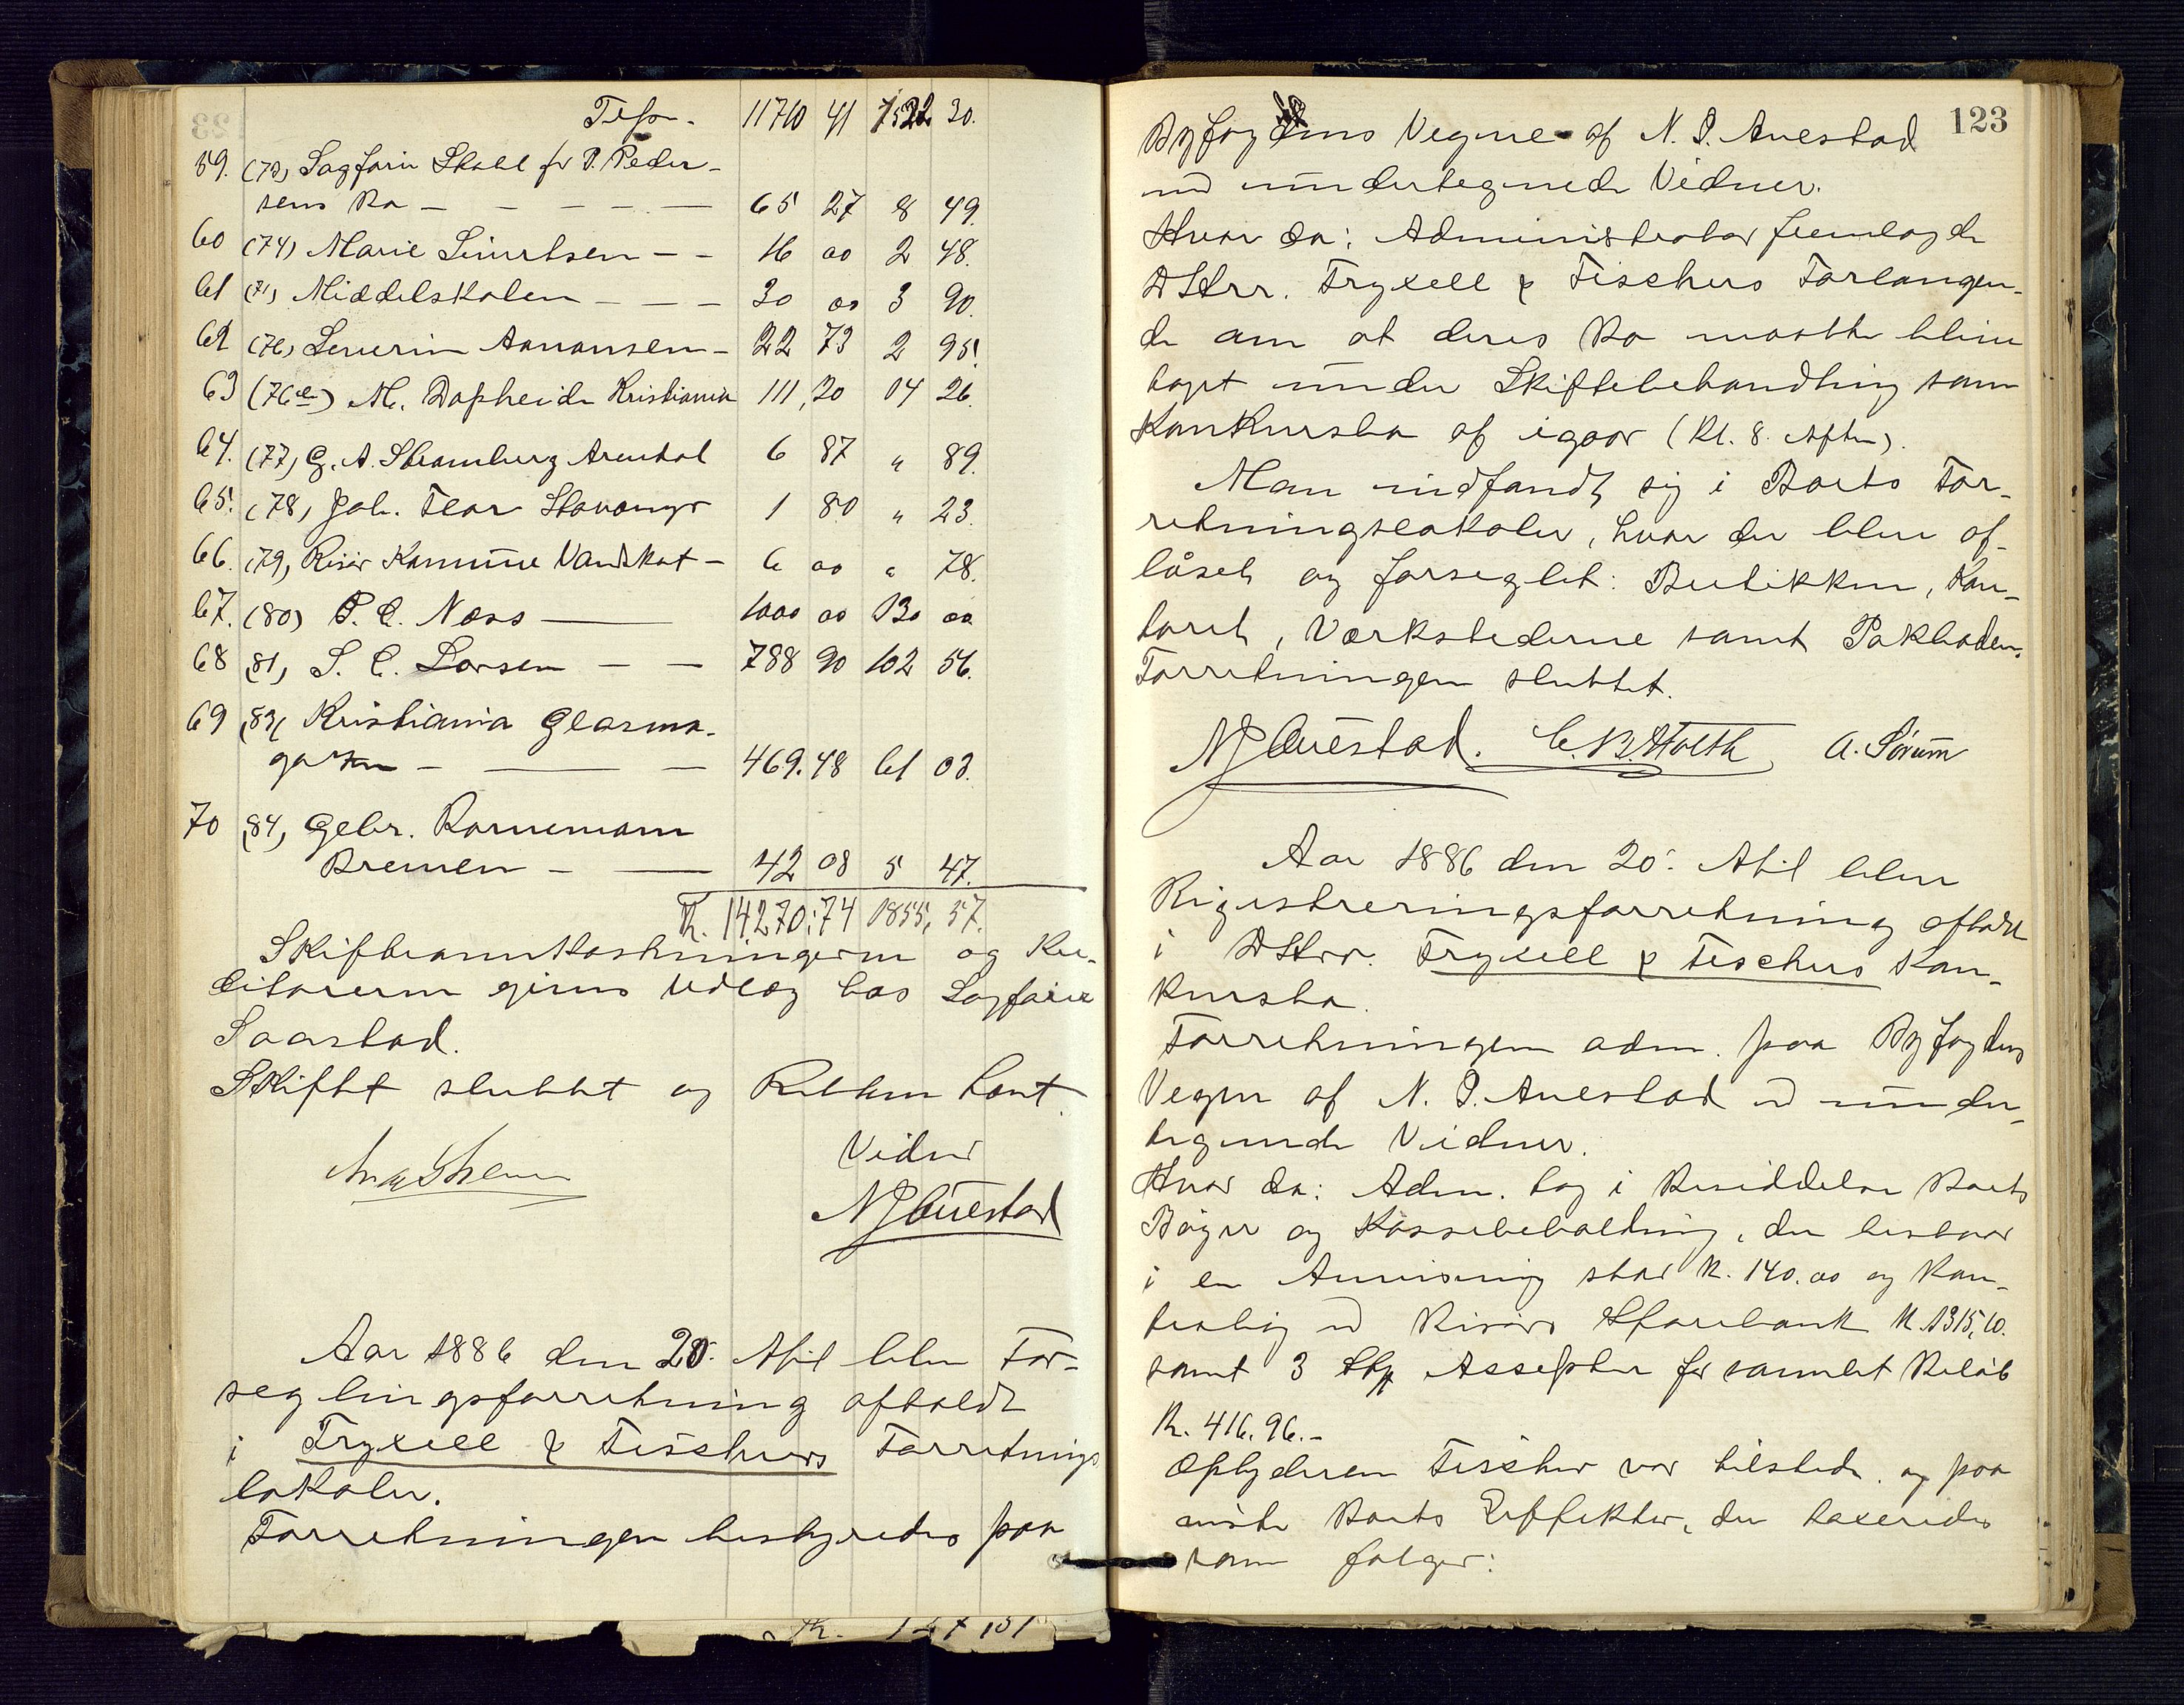 Trspr. 11710 41 1522 30.
59. (73) Sagfører Stabel for P. Peder-
sens Bo — 65 27 8 49.
60 (74) Marie Sivertsen — 16 00 2 48.
61 (71) Middelskolen — 30 00 3 90.
62 (76) Severin Aanonsen — 22 73 2 95.
63 (76 b) M. Dopheide Kristiania 111,20 14 26.
64. (77) G. A. Stromberg Arendal 6 87 " 89.
65. (78) Joh. Floor Stavanger 1 80 " 23.
66. (79) Risør Kommune Vandskat — 6 00 " 78.
67. (80) P. C. Næss — 1000 00 130 00
68 (81) S. C. Larsen — 788 90 102 56.
69 (83) Kristiania Glasma-
gasin — 469.48 61 03.
70 (84) Gebr. Bornemann
Bremen — 42 08 5 47.
K. 14270.74 1855,57.
Skifteomkostningerne og Kre-
ditorerne gives Udlæg hos Sagfører
Saastad.
Skiftet sluttet og Retten hævet.
Vidner
NJAuestad
Aar 1886 den 20. April blev For-
seglingsforretning afholdt
i Fryxell & Fischers Forretnings
lokaler.
Forretningen bestyredes paa
123
Byfogdens Vegne af N. J. Auestad
med undertegnede Vidner.
Hvor da: Administrator fremlagde
DHrr. Fryxell & Fischers Forlangen-
de om at deres Bo maatte blive
taget under Skiftebehandling som
Konkursbo af igaar (Kl. 8. Aften).
Man indfandt sig i Boets For-
retningslokaler, hvor der blev af-
låset og forseglet: Butikken, Kon-
toret, Værkstederne samt Pakboden.
Forretningen sluttet.
NJAuestad. C. B. Holth A. Sørum
Aar 1886 den 20. April blev
Registreringsforretning afholdt
i DHrr. Fryxell & Fischers Kon-
kursbo.
Forretningen adm. paa Byfogdens
Vegne af N. J. Auestad med under-
tegnede Vidner.
Hvor da: Adm. tog i Besiddelse Boets
Bøger og Kassebeholdning, der bestaar
i en Anvisning stor K. 140.00 og Kon-
trabog med Risørs Sparebank K. 1315,10.
samt 3 Stk Accepter for samlet Beløb
K. 416.96.-
Opbyderen Fischer var tilstede og paa
viste Boets Effekter, der taxeredes
som følger: